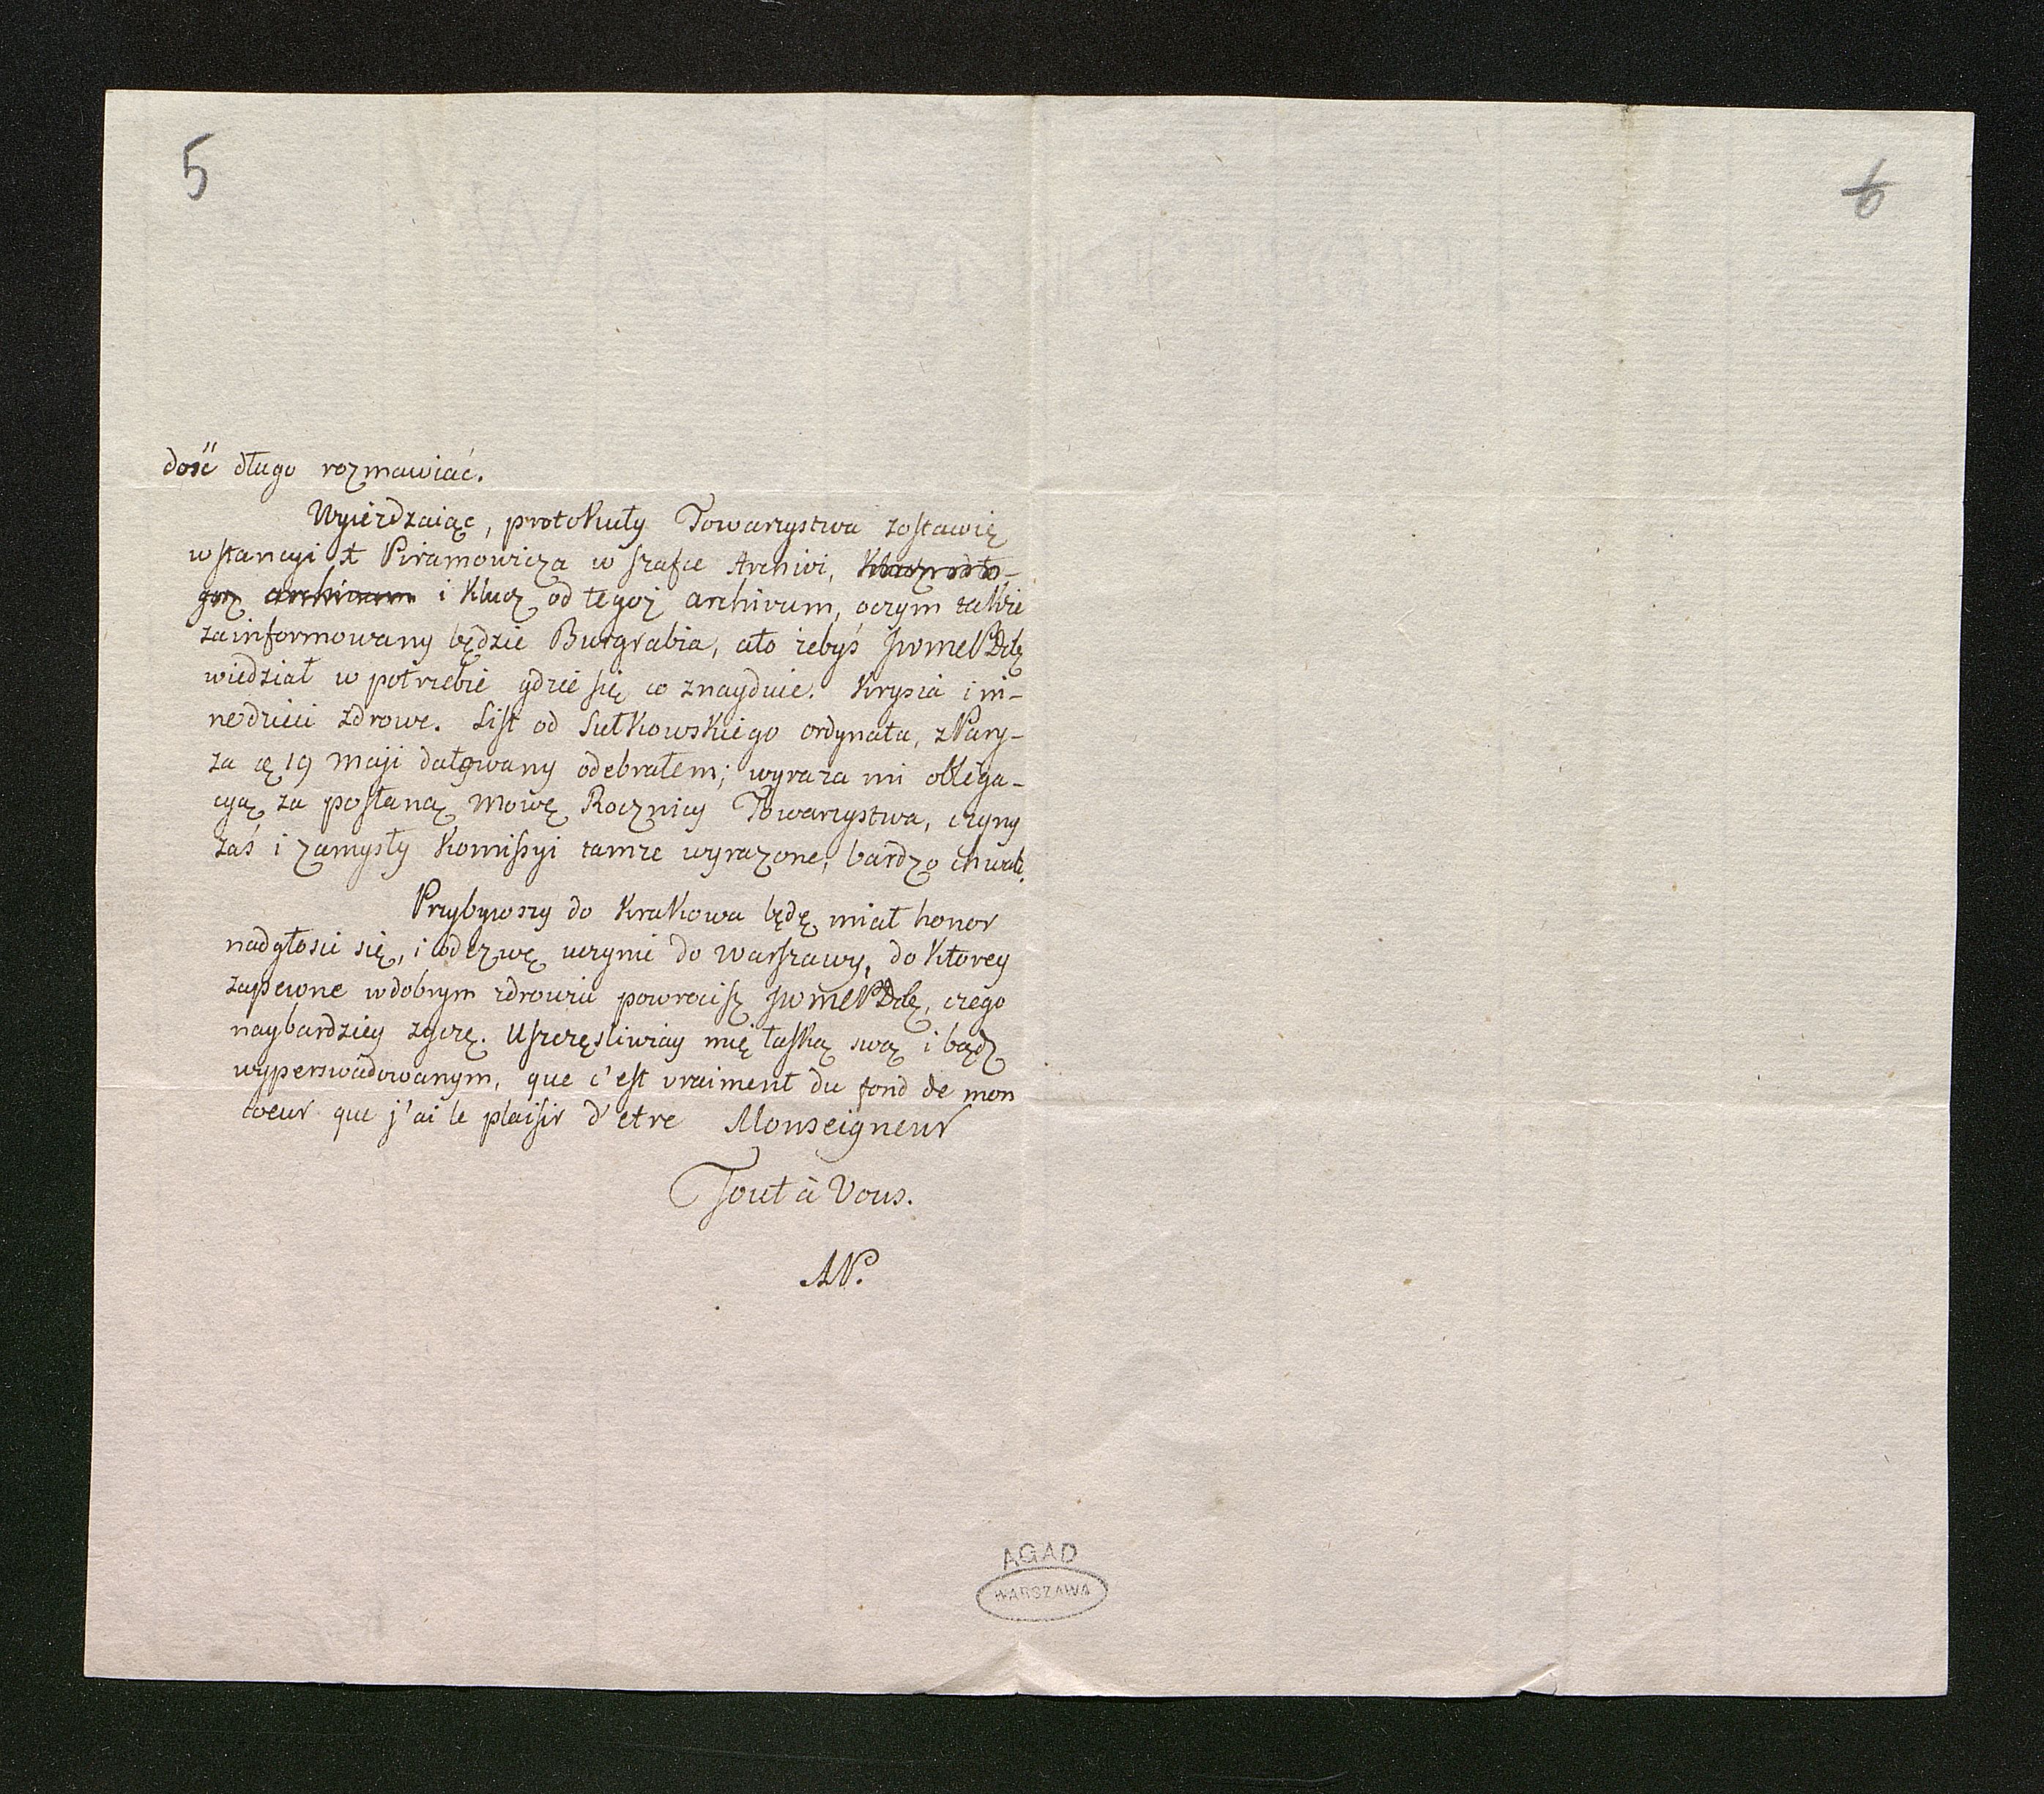 5
6
dość długo rozmawiać.
Wyierdzaiąc, protokuły Towarzystwa zostawię
w stancyi X Piramowicza w szafce Archivi,
i klucz od tegoż archivum, oczym także
zainformowany będzie Burgrabia, ato żebyś
wiedział w potrzebie gdzie się co znayduie. Krysia i in-
ne dzieci zdrowe. List od Sułkowskiego ordynata, z Pary-
ża 19 maji datowany odebrałem; wyraza mi obliga-
cyą za posłaną Mowę Rocznicy Towarzystwa, czyny
zaś i zamysły Komissyi tamże wyrazone, bardzo chwali.
Przybywszy do Krakowa będę miał honor
nadgłosić się, i odezwę uczynić do Warszawy, do ktorey
zapewne w dobrym zdrowiu powrocisz czego
naybardziey zyczę. Uszczęsliwiay mię łaską swą i bądz
wyperswadowanym, que c'est vraiment du fond de mon
coeur que j'ai le plaisir d'etre Monseigneur
Tout à Vous.
AP.
AGAD
WARSZAWA